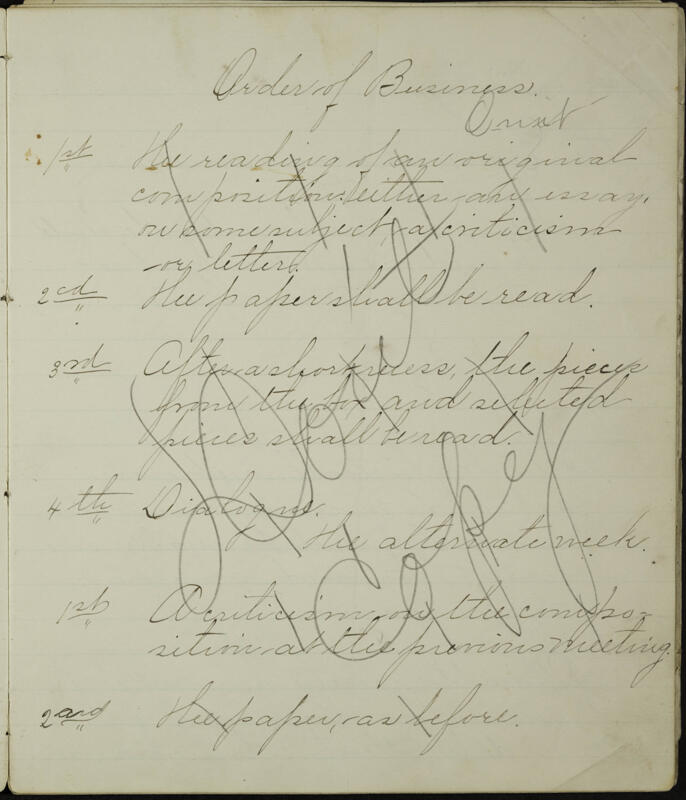 Order of Business.
Omit
1st The reading of an original
composition: either an essay,
on some subject, a criticism
or letter.
2cd The paper shall be read.
3rd After a short recess, the pieces
from the box and selected
pieces shall be read.
4th Dialogue.
The alternate week.
1st A criticism on the compo-
sition at the previous meeting.
2and The paper, as before.